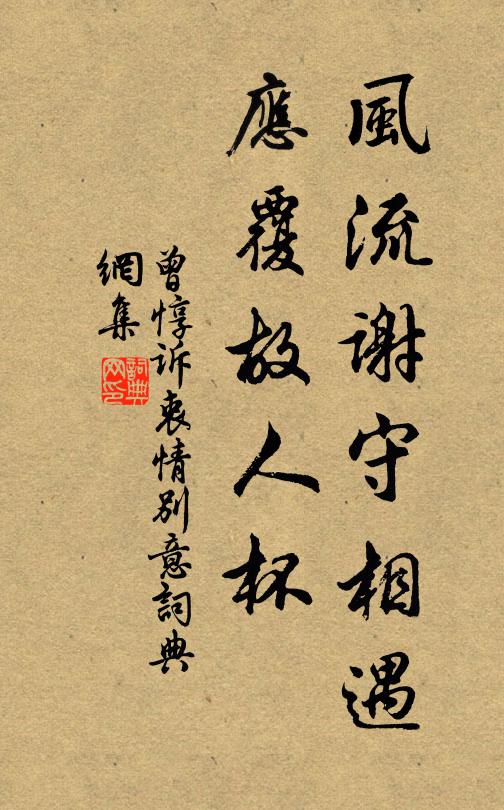 風流謝守相遇
應覆故人杯
曾惇訴衷情別意詞典
網集
詞典
网印